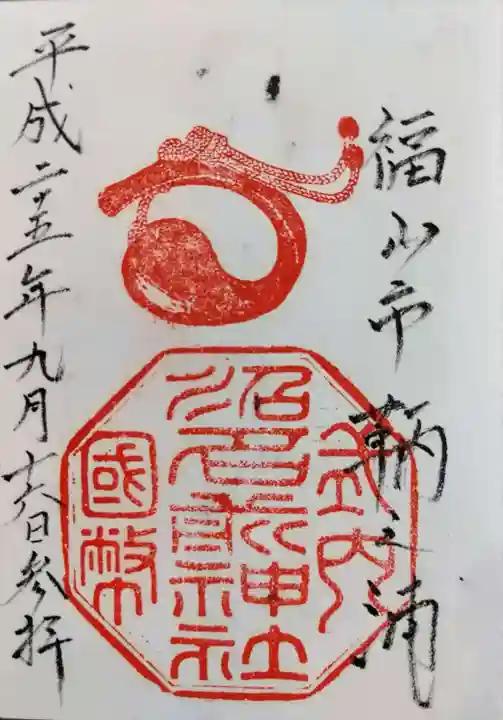 福山市鞆之浦
式内
沼名前神社
國幣
平成二十五年九月十六日参拝